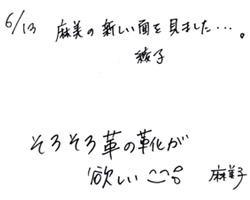 6/13 麻美の新しい面を見ました…。
綾子
そろそろ革の靴が
欲しい
麻美子